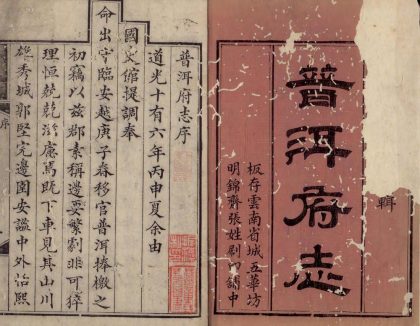 輯
普洱府志
板存雲南省城五華坊
明錦齋張姓刷印舖中
普洱府志序
道光十有六年丙申夏余由
國史館提調奉
命出守臨安越庚子春移官普洱捧檄之
初竊以茲郡素稱邊要繁劇非可猝
理恒兢兢滋慮焉既下車見其山川
雄秀城郭堅完邊圉安謐中外洽熙
序